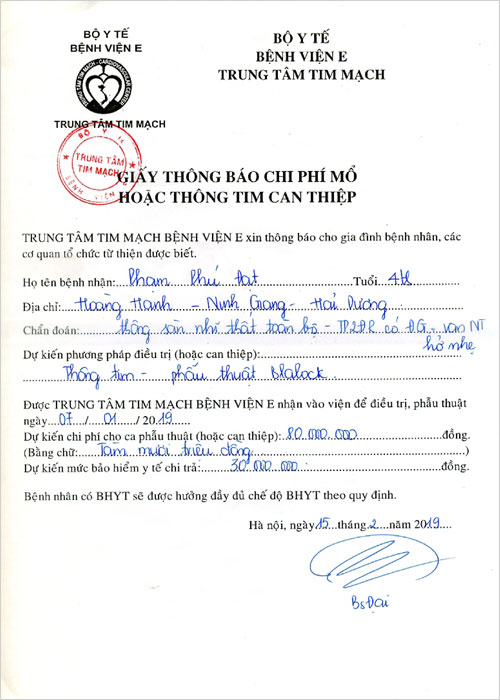 BỘ Y TẾ
BỆNH VIỆN E
TRUNG TÂM TIM MẠCH - CARDIOVASCULAR CENTER
TRUNG TÂM TIM MẠCH
BỘ Y TẾ
BỆNH VIỆN E
TRUNG TÂM TIM MẠCH
BỘ Y TẾ
TRUNG TÂM
TIM MẠCH
BỆNH VIỆN E
GIẤY THÔNG BÁO CHI PHÍ MỔ
HOẶC THÔNG TIM CAN THIỆP
TRUNG TÂM TIM MẠCH BỆNH VIỆN E xin thông báo cho gia đình bệnh nhân, các
cơ quan tổ chức từ thiện được biết.
Họ tên bệnh nhân: Phạm Phú Đạt Tuổi 4th
Địa chỉ: Hoàng Hanh - Ninh Giang - Hải Dương
Chẩn đoán: thông sàn nhĩ thất toàn bộ - TP2ĐR có ĐG - van NT
hở nhẹ
Dự kiến phương pháp điều trị (hoặc can thiệp):
Thông tim - phẫu thuật Blalock
Được TRUNG TÂM TIM MẠCH BỆNH VIỆN E nhận vào viện để điều trị, phẫu thuật
ngày 07 / 01 / 2019
Dự kiến chi phí cho ca phẫu thuật (hoặc can thiệp): 80.000.000 đồng.
(Bằng chữ: Tám mươi triệu đồng )
Dự kiến mức bảo hiểm y tế chi trả: 30.000.000 đồng.
Bệnh nhân có BHYT sẽ được hưởng đầy đủ chế độ BHYT theo quy định.
Hà nội, ngày 15 tháng 2 năm 2019
Bs Đại